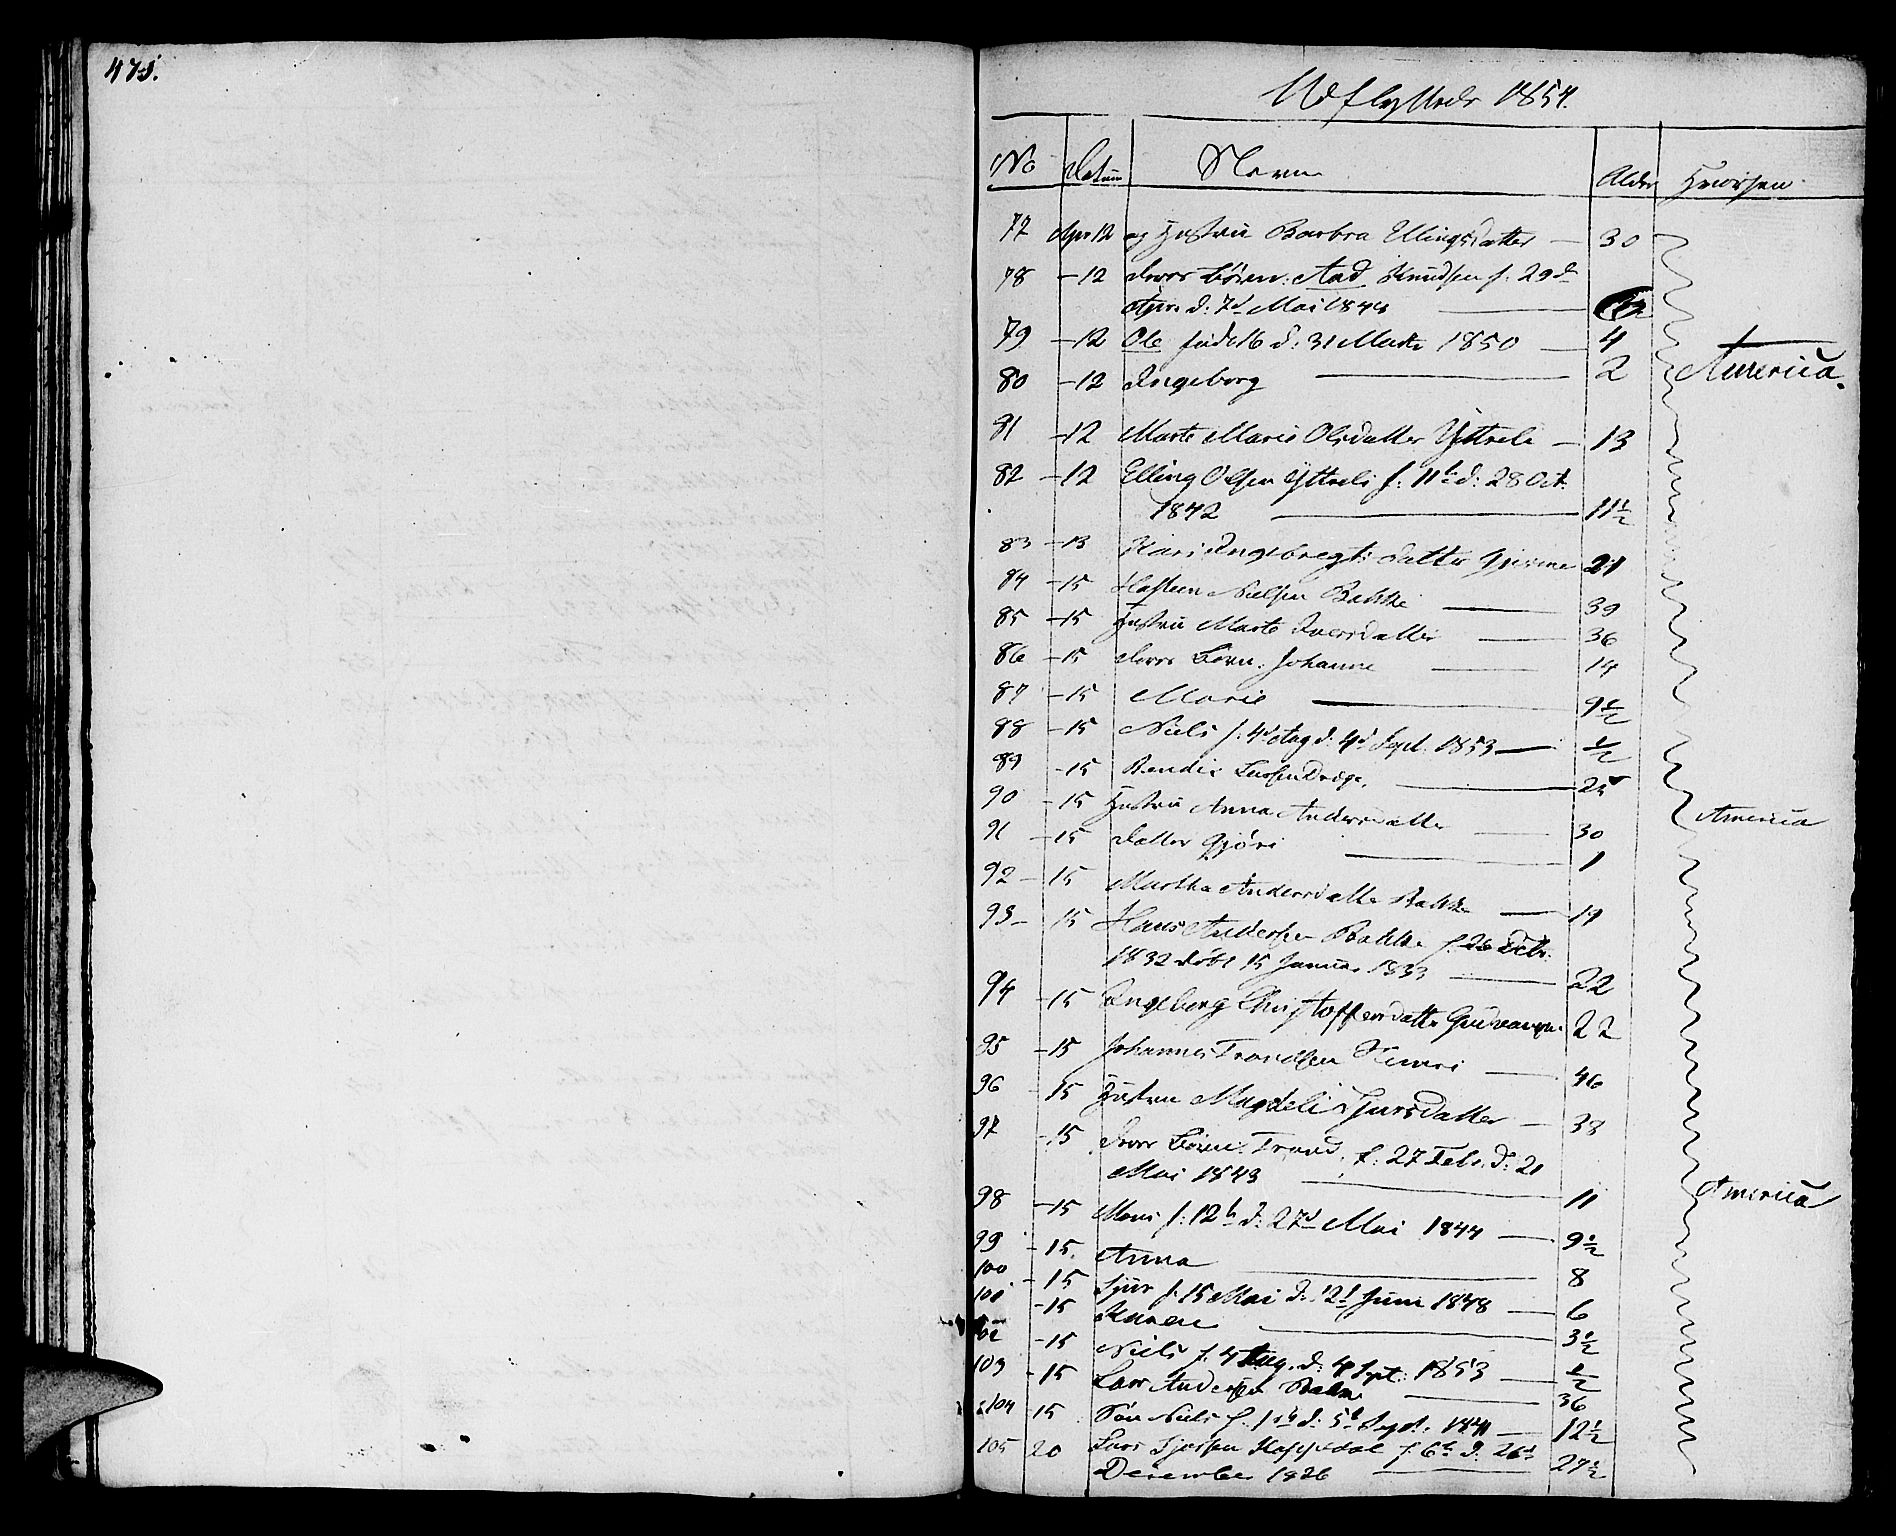 475.
Udflyttede 1854.
No Datum Navn Alder Hvorhen
77 Apr 12 og Hustru Barbra Ellingsdatter — 30
78 – 12 deres Børn: Aad Knudsen f. 29de
Apr. d: 7d Mai 1844 —
79 – 12 Ole født 16 d: 31 Marts 1850 — 4
80 – 12 Ingeborg — 2 America.
81 – 12 Marte Marie Olsdatter Yttreli — 13
82 – 12 Elling Olsen Yttreli f: 11te d: 28 Oct.
1842 — 11½
83 – 13 Kari Ingebregts datter 21
84 – 15 Hasteen Nielsen Bakke — 39
85 – 15 Hustru Marte Iversdatter — 36
86 – 15 deres Børn: Johanne — 14
87 – 15 Marie — 9½
88 – 15 Niels f: 4d Aug d: 4d Sept. 1853 — ½
89 – 15 Bendix — 25
90 – 15 Hustru Anna Andersdatter — 30 America
91 – 15 datter Gjøri — 1
92 – 15 Martha Andersdatter Bakke — 19
93 – 15 Hans Andersen Bakke f. 26
1832 døbt 15 Januar 1833 — 22
94 – 15 Ingeborg Christoffersdatter Gudvangen 22
95 – 15 Johannes Trondsen — 46
96 – 15 Hustru Magdeli Sjursdatter — 38
97 – 15 deres Børn: Trond, f: 27 Feb. d: 21
Mai 1843 — 11 America
98 – 15 Mons f: 12te d: 27d Mai 1844 — 9½
99 – 15. Anna — 8
100 – 15 Sjur f. 15 Mai d. 12t Juni 1848 — 6
101 – 15 Karen — 3½
102 – 15 Niels f. 4 Aug. d: 4 Sept: 1853 — ½
103 – 15 Lars Andersen — 36
104 15 Søn Niels f. d: 5te Sept. 1841 — 12½
105 20 Lars Sjursen f. 6te d. 26d
December 1826 — 27½